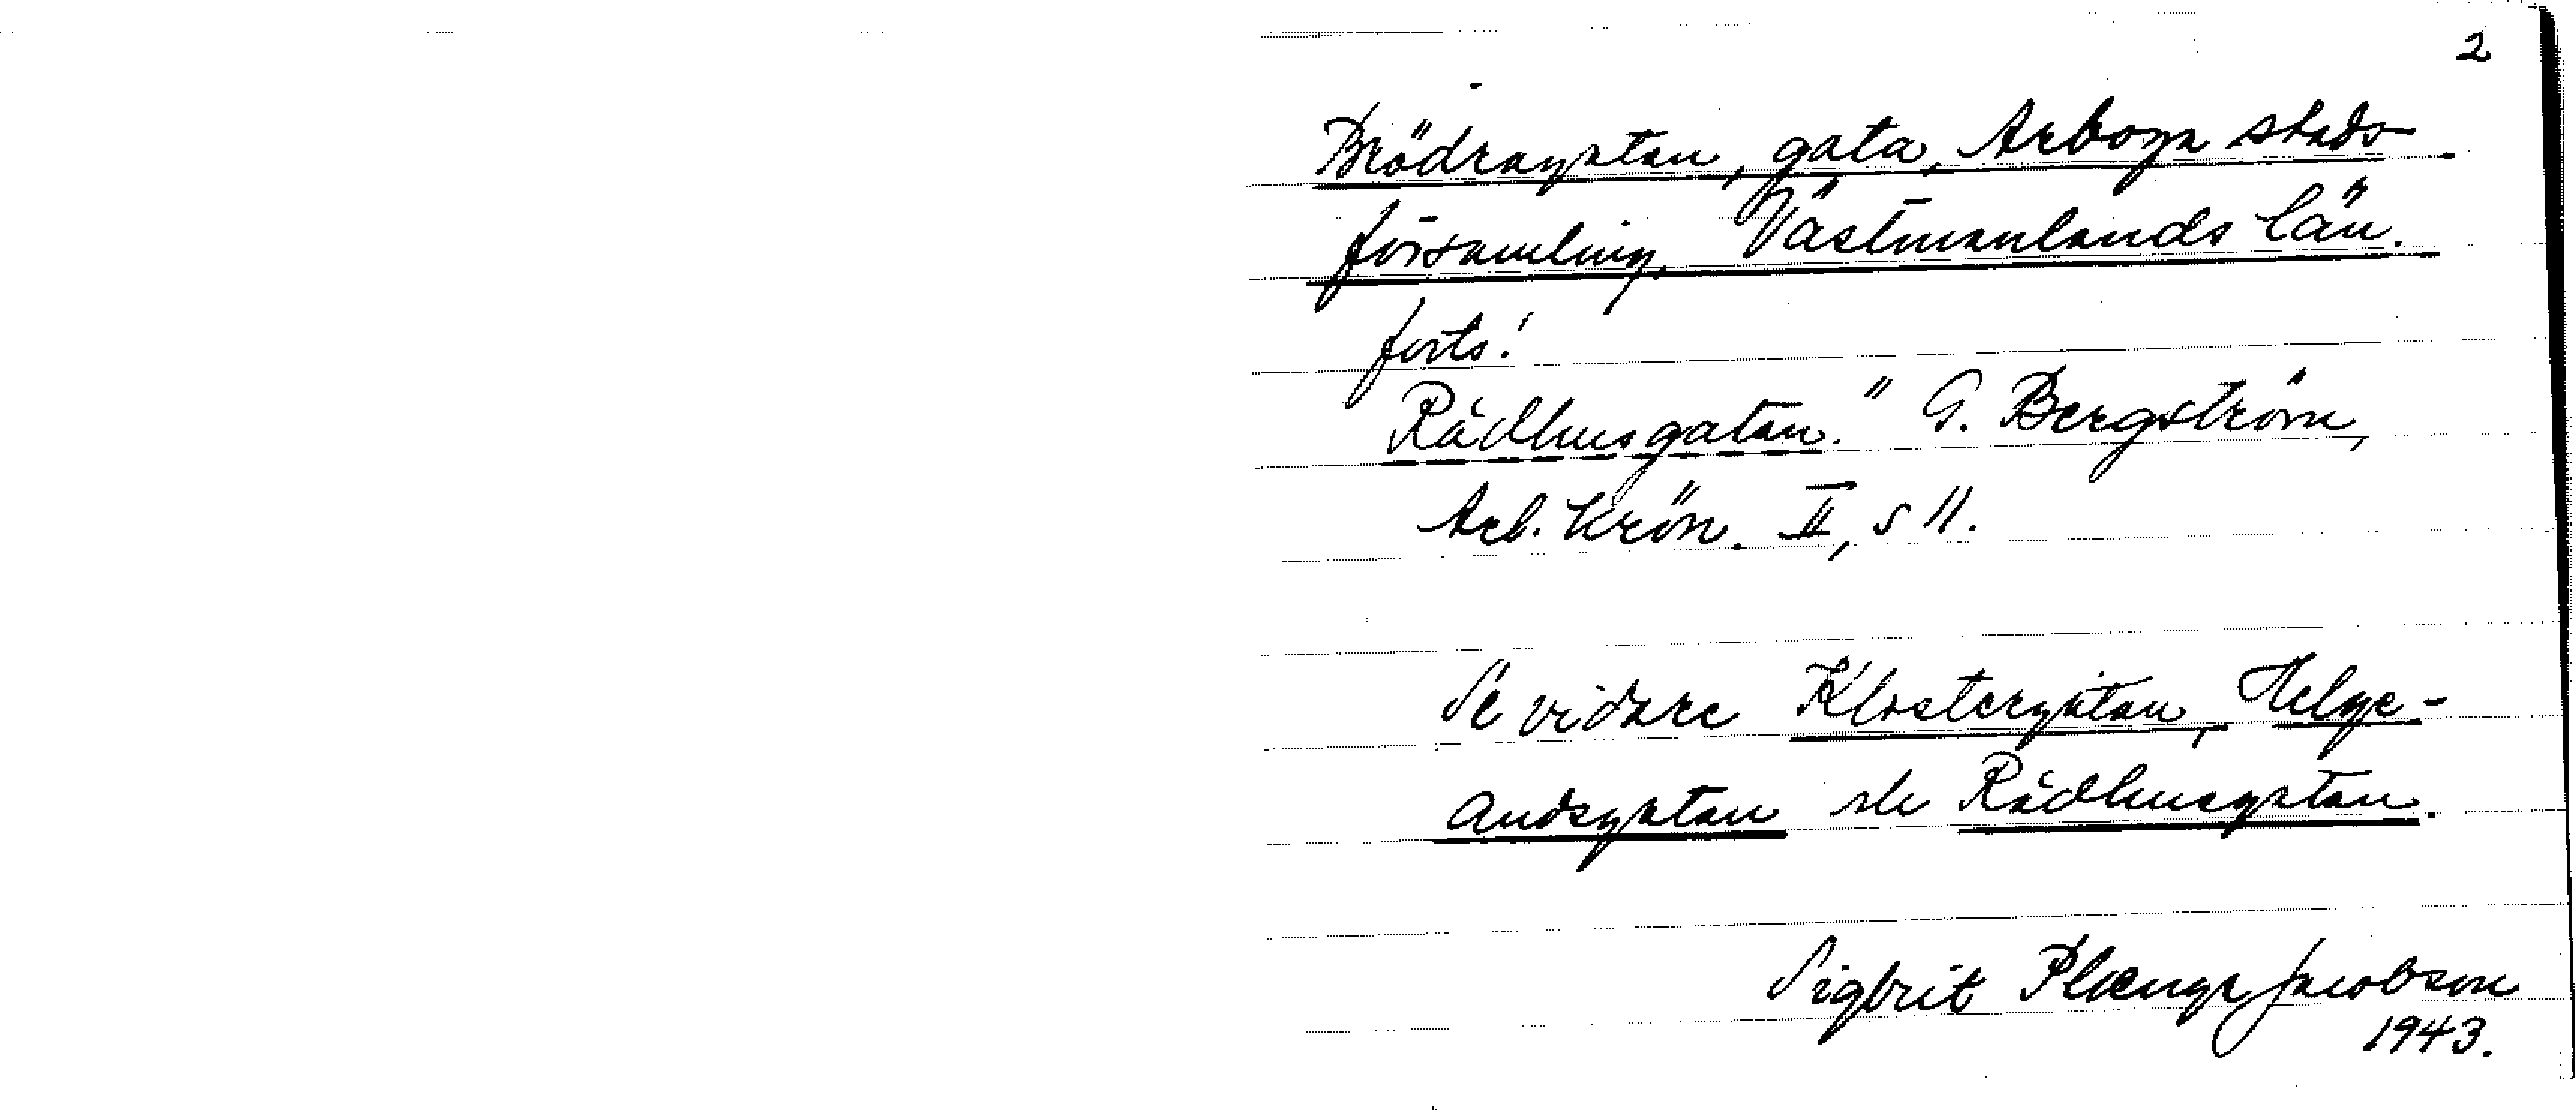 2
Brödragatan, gata, Arboga stads-
församling, Västmanlands län.
forts!
Rådhusgatan." G. Bergström,
Arb. Krön. II, s 11.
Se vidare Klostergatan, Helge-
andsgatan o Rådhusgatan.
Sigbrit Plænge Jacobson
1943.